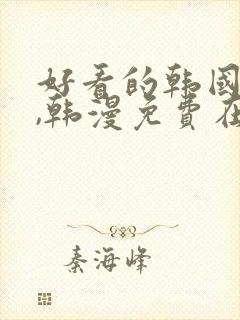 好看的韩國
,韩漫免費在
秦海峰